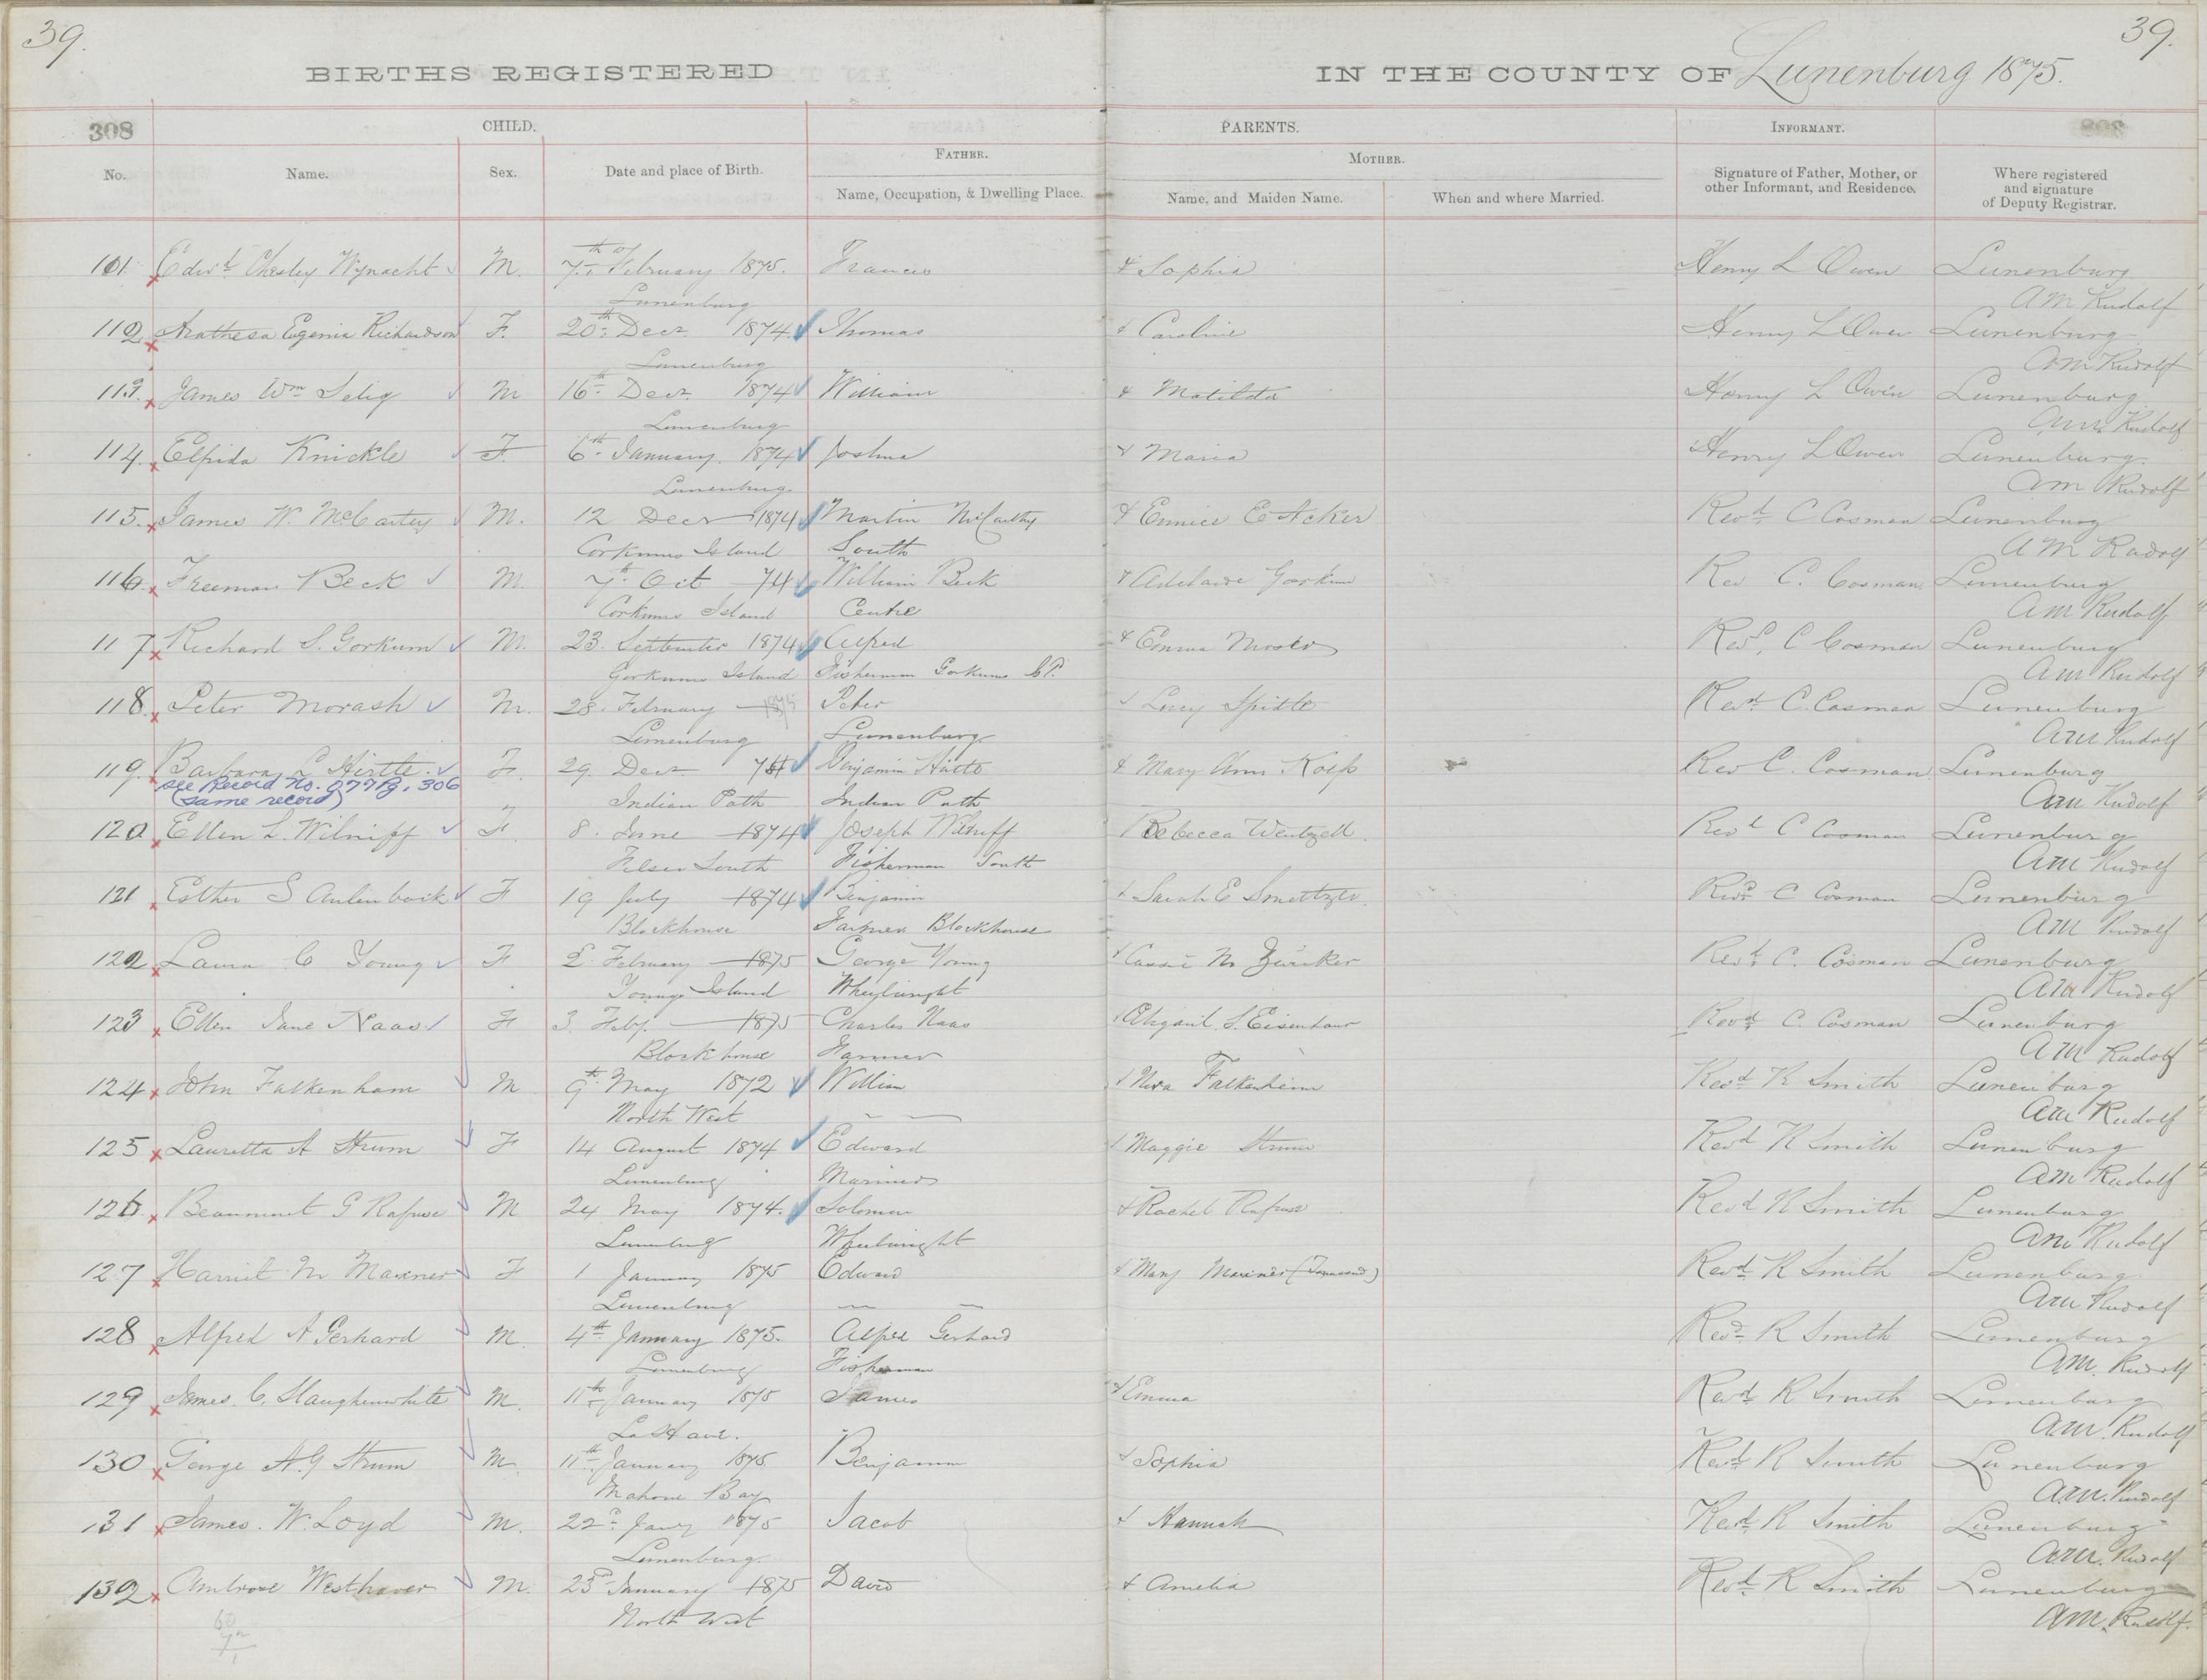 39.
39.
BIRTHS REGISTERED
IN THE COUNTY OF Lunenburg 1875.
308
CHILD.
PARENTS.
INFORMANT.
No.
Name.
Sex.
Date and place of Birth.
FATHER.
Name, Occupation, & Dwelling Place.
MOTHER.
Name, and Maiden Name.
When and where Married.
Signature of Father, Mother, or
other Informant, and Residence.
Where registered
and signature
of Deputy Registrar.
101. Edwd Chesley Wynacht M. 7th February 1875. Frances & Sophia Henry L Owen Lunenburg
Lunenburg A M Rudolf
112 Eugenia Richardson F. 20th Decr 1874 Thomas & Caroline Henry L Owen Lunenburg
Lunenburg A M Rudolf
113. James Wm Selig M 16th Decr 1874 William & Matilda Henry L Owen Lunenburg
Lunenburg A M Rudolf
114. Elfrida Knickle F. 6th January 1874 Joshua & Maria Henry L Owen Lunenburg
Lunenburg A M Rudolf
115. James W. McCartey M. 12 Decr 1874 Martin McCarthy & Eunice E Acker Revd C Cosman Lunenburg
Corkums Island South A M Rudolf
116. Freeman Beck M. 7th Oct 74 William Beck & Adelaide Gorkum Rev C. Cosman Lunenburg
Corkums Island Centre A M Rudolf
117 Richard S. Gorkum M. 23. September 1874 Alfred & Emma Mosler Revd, C Cosman Lunenburg
Gorkums Island Fisherman Gorkums A M Rudolf
118. Peter Morash M. 28. February 1875 Peter & Lucy Spittle Revd C. Cosman Lunenburg
Lunenburg Lunenburg A M Rudolf
119. Barbara L Hirtle F. 29. Decr 74 Benjamin Hirtle & Mary Ann Kolp Rev C. Cosman Lunenburg
see Record No. 077 Pg. 306
(same record)
Indian Path Indian Path A M Rudolf
120. Ellen L. Wilniff F 8. June 1874 Joseph Wilniff Rebecca Wentzell Revd C Cosman Lunenburg
South Fisherman South A M Rudolf
121 Esther S Aulenback F 19 July 1874 Benjamin & Sarah E Smeltzer Revd C Cosman Lunenburg
Blockhouse Farmer Blockhouse A M Rudolf
122 Laura C Young F 2. February 1875 George Young & Cassie M Zwicker Revd C. Cosman Lunenburg
Youngs Island Wheylwright A M Rudolf
123 Ellen Jane Naas F 3. Feby. 1875 Charles Naas & Abigail S. Eisenhaur Revd C. Cosman Lunenburg
Blockhouse Farmer A M Rudolf
124 John Falkenham M 9th May 1872 William & Falkenheim Revd R Smith Lunenburg
North West A M Rudolf
125 Lauretta A Strum F 14 August 1874 Edward & Maggie Strum Revd R Smith Lunenburg
Lunenburg Mariner A M Rudolf
126 Beaumont G Rafuse M 24 May 1874. Solomon & Rachel Rafuse Revd R Smith Lunenburg
Lunenburg Wheelwright A M Rudolf
127 Harriet M Maxner F 1 January 1875 Edward & Mary Maxiner (Townsend) Revd R Smith Lunenburg
Lunenburg A M Rudolf
128 Alfred A Gerhard M. 4th January 1875. Alfred Gerhard Revd R Smith Lunenburg
Lunenburg Fisherman A M. Rudolf
129 James. C. Slaughenwhite M. 11th January 1875 James & Emma Revd R Smith Lunenburg
La Have. A M. Rudolf
130 George A. G Strum M. 11th January 1875 Benjamin & Sophia Revd R Smith Lunenburg
Mahone Bay A. M. Rudolf
131 James. W. Loyd M. 22d Jany 1875 Jacob & Hannah Revd R Smith Lunenburg
Lunenburg. A M. Rudolf
132 Ambrose Westhaver M. 23d January 1875 David & Amelia Revd R Smith Lunenburg
North West A M. Rudolf.